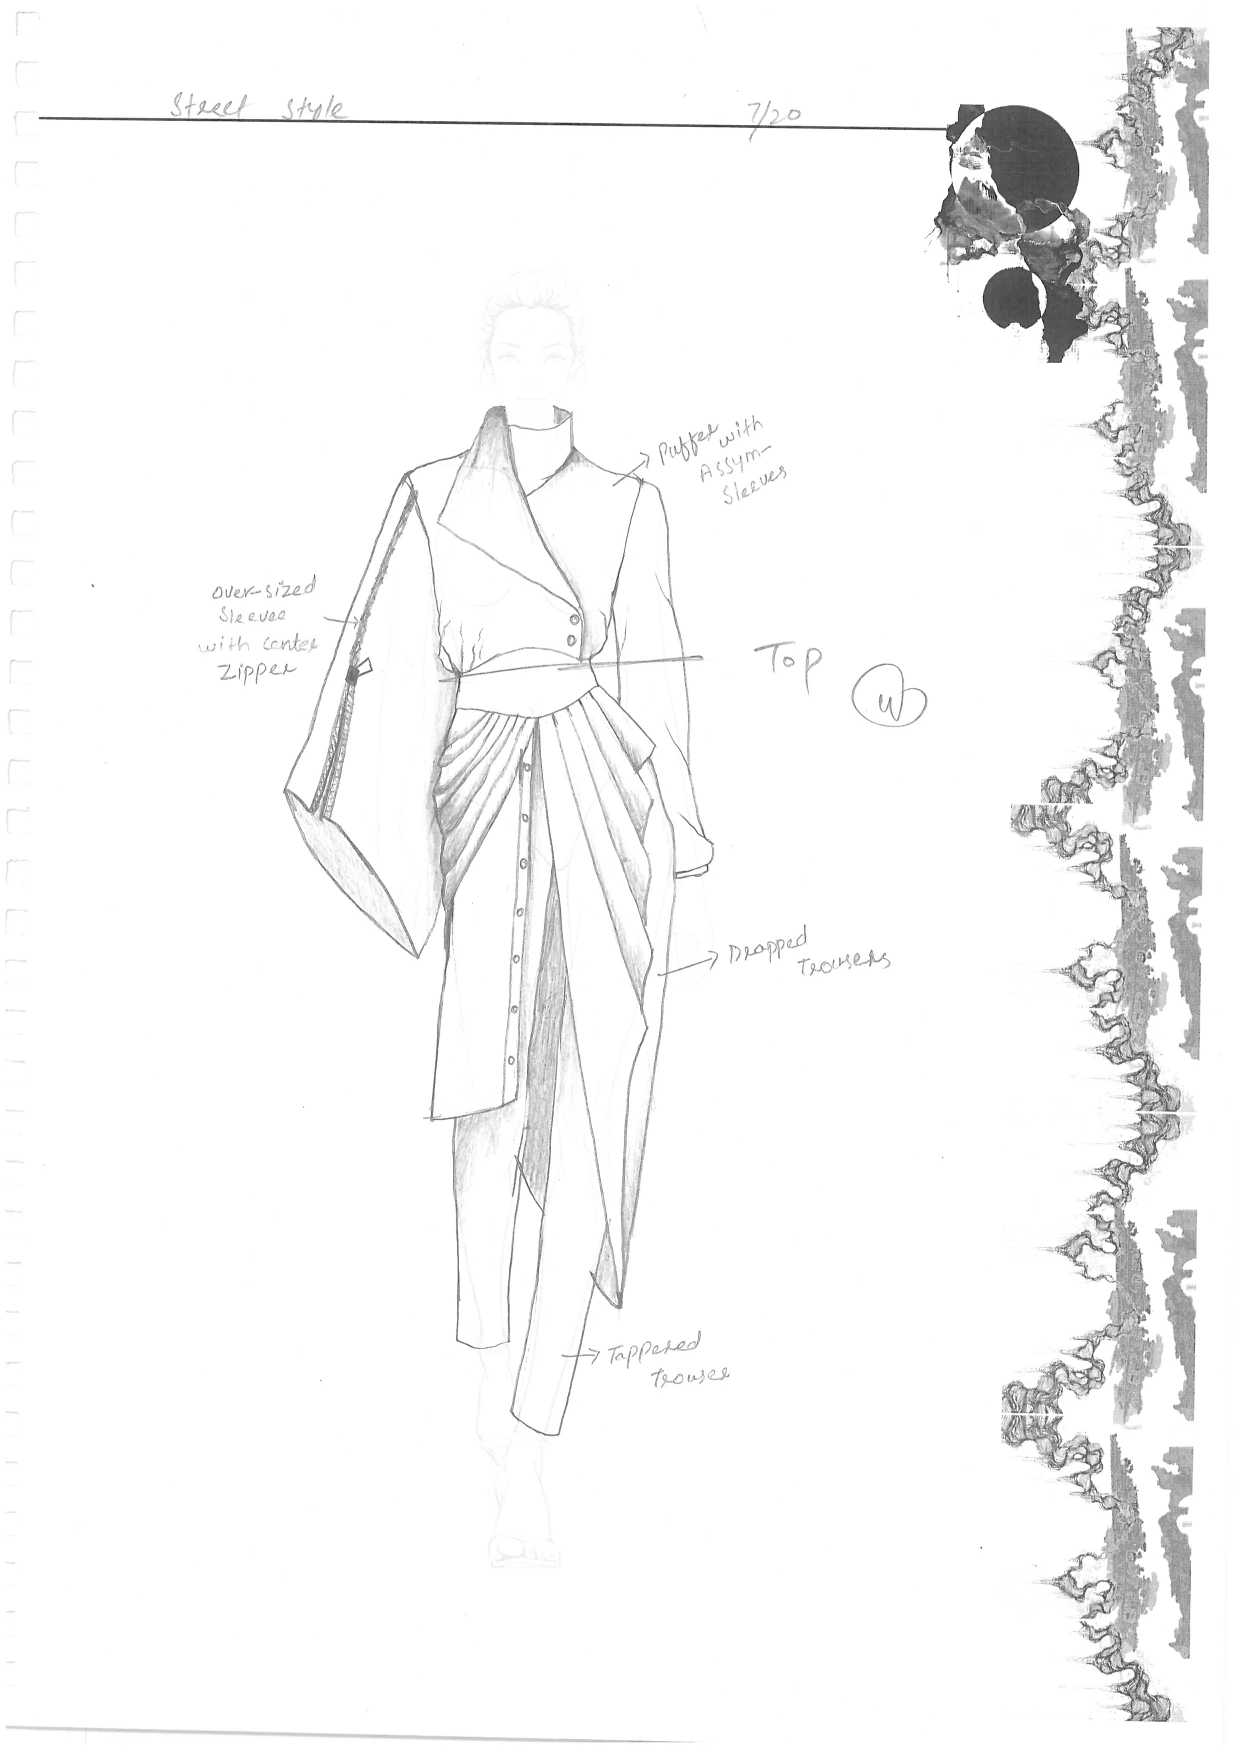 Street Style
7/20
Puffer with
Assym-
Sleeves
over-sized
Sleeves
with center
Zipper
Top
W
Drapped
Trousers
Tappered
Trouser